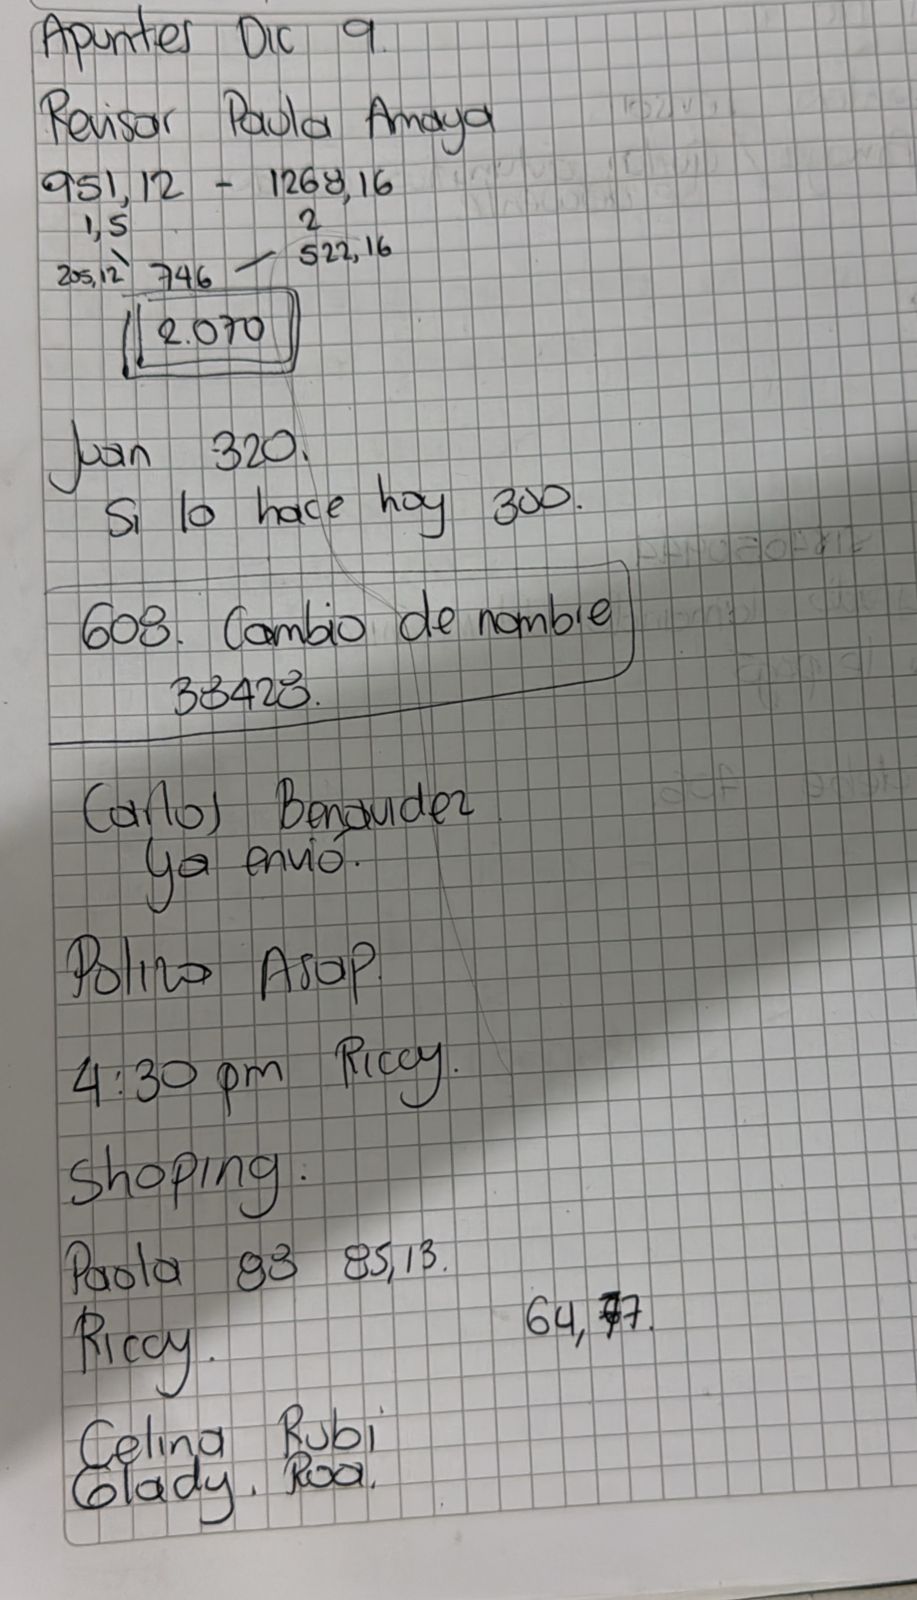 Apuntes Dic 9.
Revisar Paula Amaya
951,12 - 1268,16
1,5 2
205,12 746 - 522,16
2.070
Juan 320.
Si lo hace hoy 300.
608. Cambio de nombre
38428.
Carlos Benavidez
ya envió.
Asap.
4:30 pm Riccy.
Shoping.
Paola 98 85,13.
Riccy. 64,77.
Celina Rubi
Glady. Roa.